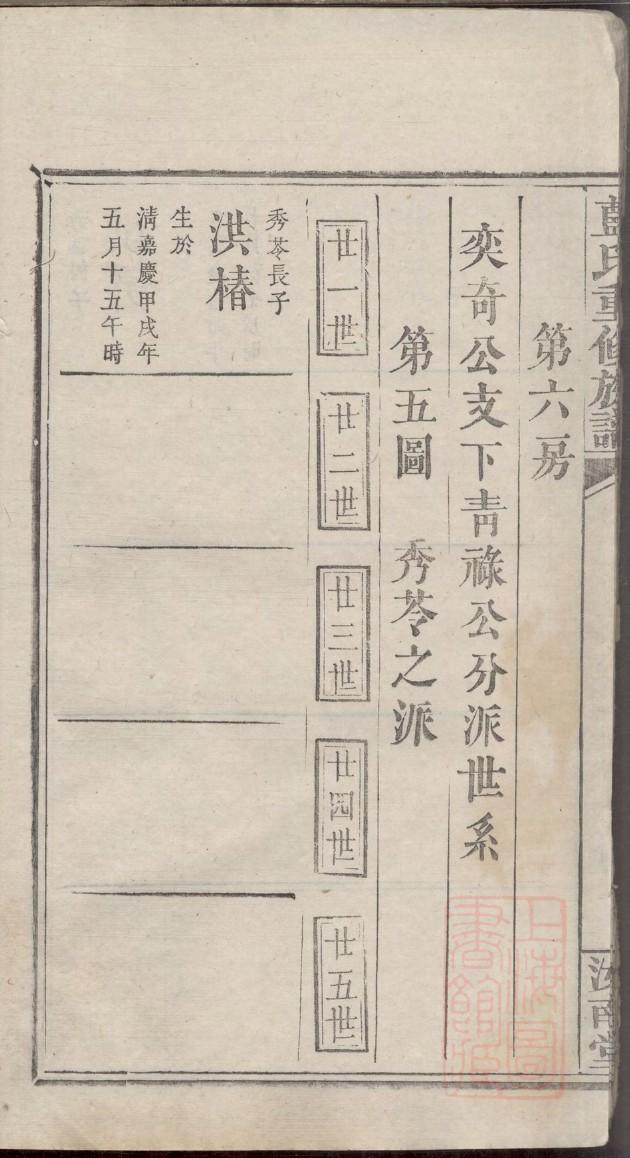 藍氏重修族譜
汝南堂
第六房
奕奇公支下青祿公分派世系
第五圖 秀苓之派
廿一世
廿二世
廿三世
廿四世
廿五世
秀苓長子
洪椿
生於
清嘉慶甲戌年
五月十五午時
上海圖
書館藏